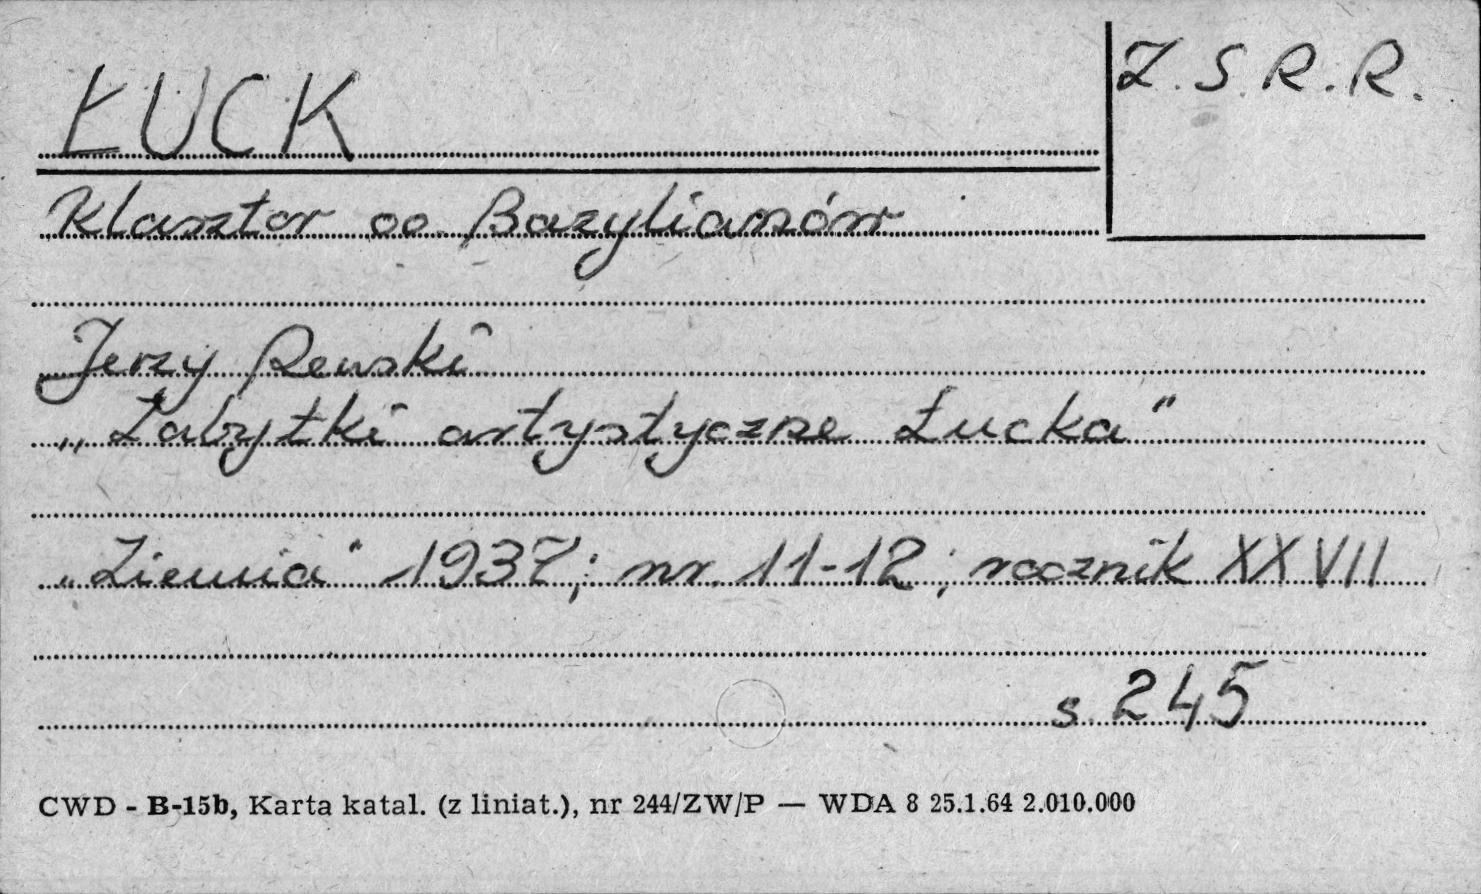 ŁUCK
Z.S.R.R.
Klasztor oo. Bazylianów
Jerzy Rewski
„Zabytki artystyczne Łucka"
„Ziemia" 1937; nr. 11-12; rocznik XXVII
s. 245
CWD - B-15b, Karta katal. (z liniat.), nr 244/ZW/P — WDA 8 25.1.64 2.010.000